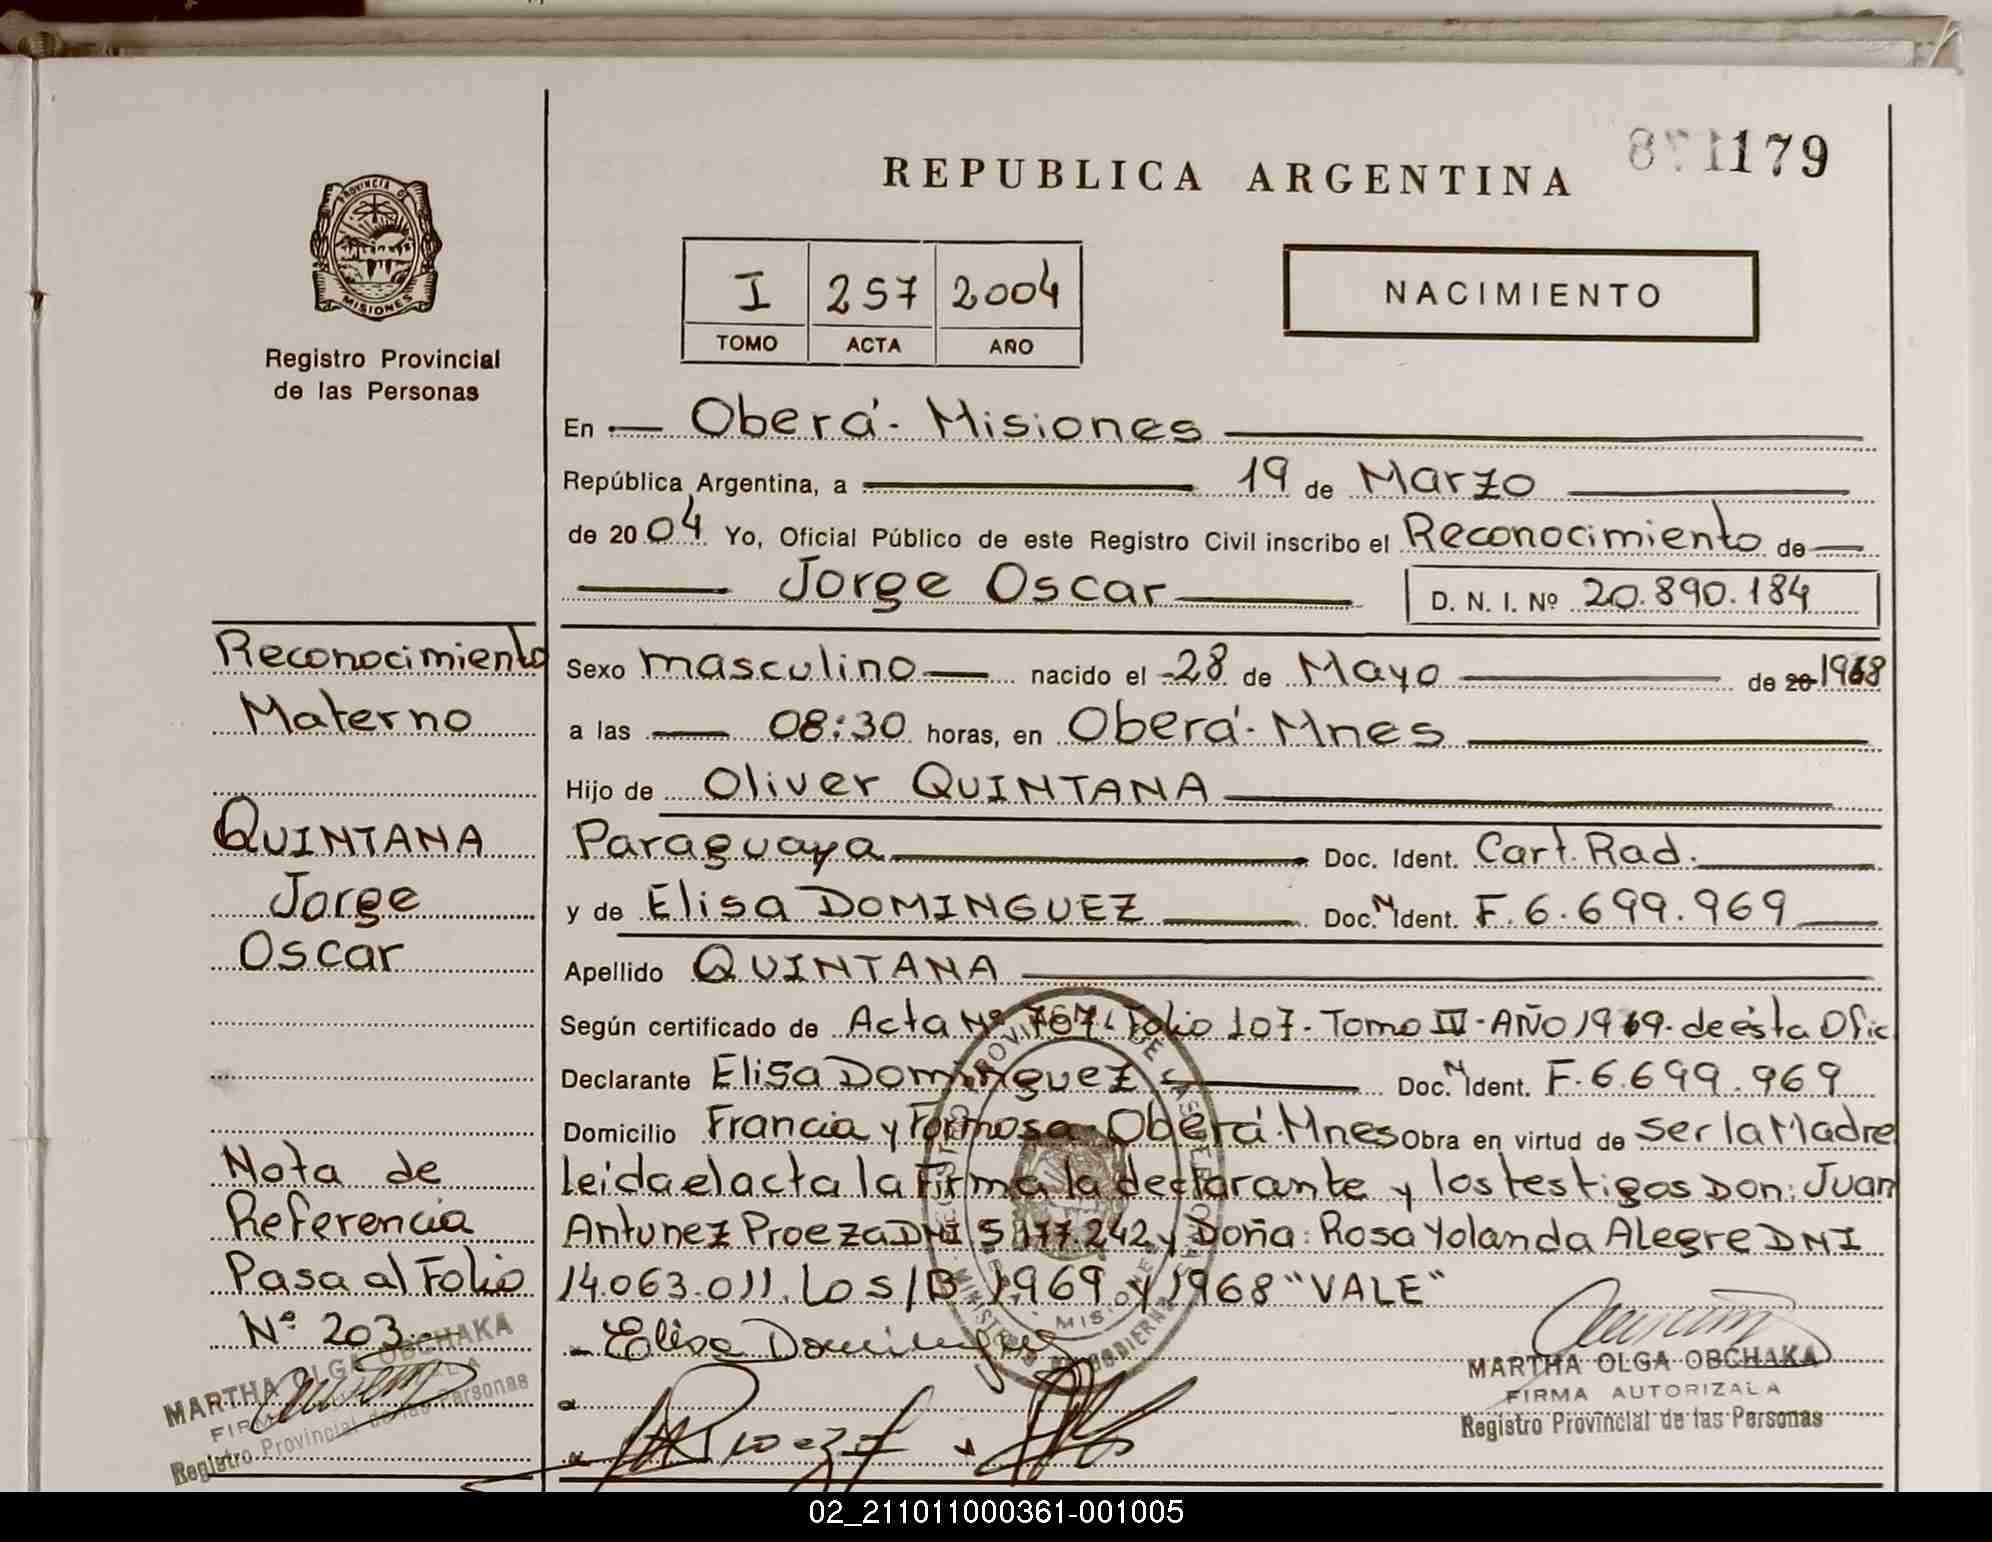 871179
REPUBLICA ARGENTINA
PROVINCIA DE
MISIONES
Registro Provincial
de las Personas
I 257 2004
TOMO ACTA AÑO
NACIMIENTO
En Oberá - Misiones
República Argentina, a 19 de Marzo
de 2004 Yo, Oficial Público de este Registro Civil inscribo el Reconocimiento de
Jorge Oscar D. N. I. Nº 20.890.184
Sexo masculino nacido el 28 de Mayo de 20 1968
a las 08:30 horas, en Oberá - Mnes
Hijo de Oliver QUINTANA
Paraguaya Doc. Ident. Cart. Rad.
y de Elisa DOMINGUEZ Doc. N Ident. F. 6.699.969
Apellido QUINTANA
Según certificado de Acta Nº 767. Folio 107 - Tomo IV - AÑO 1969 - de ésta Ofic
Declarante Elisa Dominguez Doc. N Ident. F. 6.699.969
Domicilio Francia y Formosa Oberá. Mnes Obra en virtud de ser la Madre
leida el acta la Firma la declarante y los testigos Don: Juan
Antunez Proeza DNI 5.177.242 y Doña: Rosa Yolanda Alegre DNI
14.063.011. Lo s/B 1969 y 1968 "VALE"
Elisa Dominguez
Proeza
MARTHA OLGA OBCHAKA
FIRMA AUTORIZADA
Registro Provincial de las Personas
Reconocimiento
Materno
QUINTANA
Jorge
Oscar
Nota de
Referencia
Pasa al Folio
Nº 203
MARTHA OLGA OBCHAKA
Registro Provincial de las Personas
02_211011000361-001005